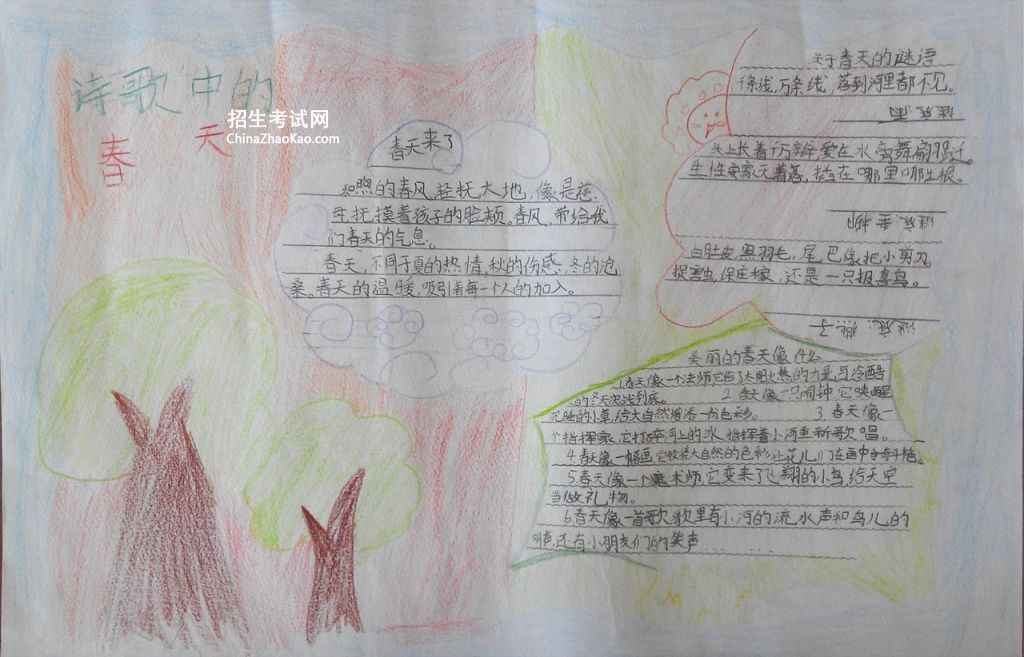 诗歌中的
春 天
招生考试网
ChinaZhaoKao.com
春天来了
和煦的春风,轻抚大地,像是慈
母抚摸着孩子的脸颊。春风,带给我
们春天的气息。
春天,不同于夏的热情,秋的伤感、冬的沧
桑。春天的温暖,吸引着每一个人的加入。
关于春天的谜语
千条线,万条线,落到河里都不见。
头上长着千万辫,爱在水旁舞翩
生性安家无着落,插在哪里哪生根。
白肚皮,黑羽毛,尾巴像把小剪刀
捉害虫,保庄稼,还是一只报喜鸟。
美丽的春天像什么
1.春天像一个法师,它借了太阳火热的力量与冷酷
的冬天
2.春天像一只闹钟,它唤醒
沉睡的小草,给大自然增添一份色彩。
3.春天像一
个指挥家,它打碎河上的冰,指挥着小河重新歌唱。
4.春天像一幅画,它收藏大自然的色彩,让花儿们在画中争奇斗艳。
5.春天像一个魔术师,它变来了飞翔的小鸟,给天空
当做礼物。
6.春天像一首歌,歌里有小河的流水声和鸟儿的
声,还有小朋友们的笑声